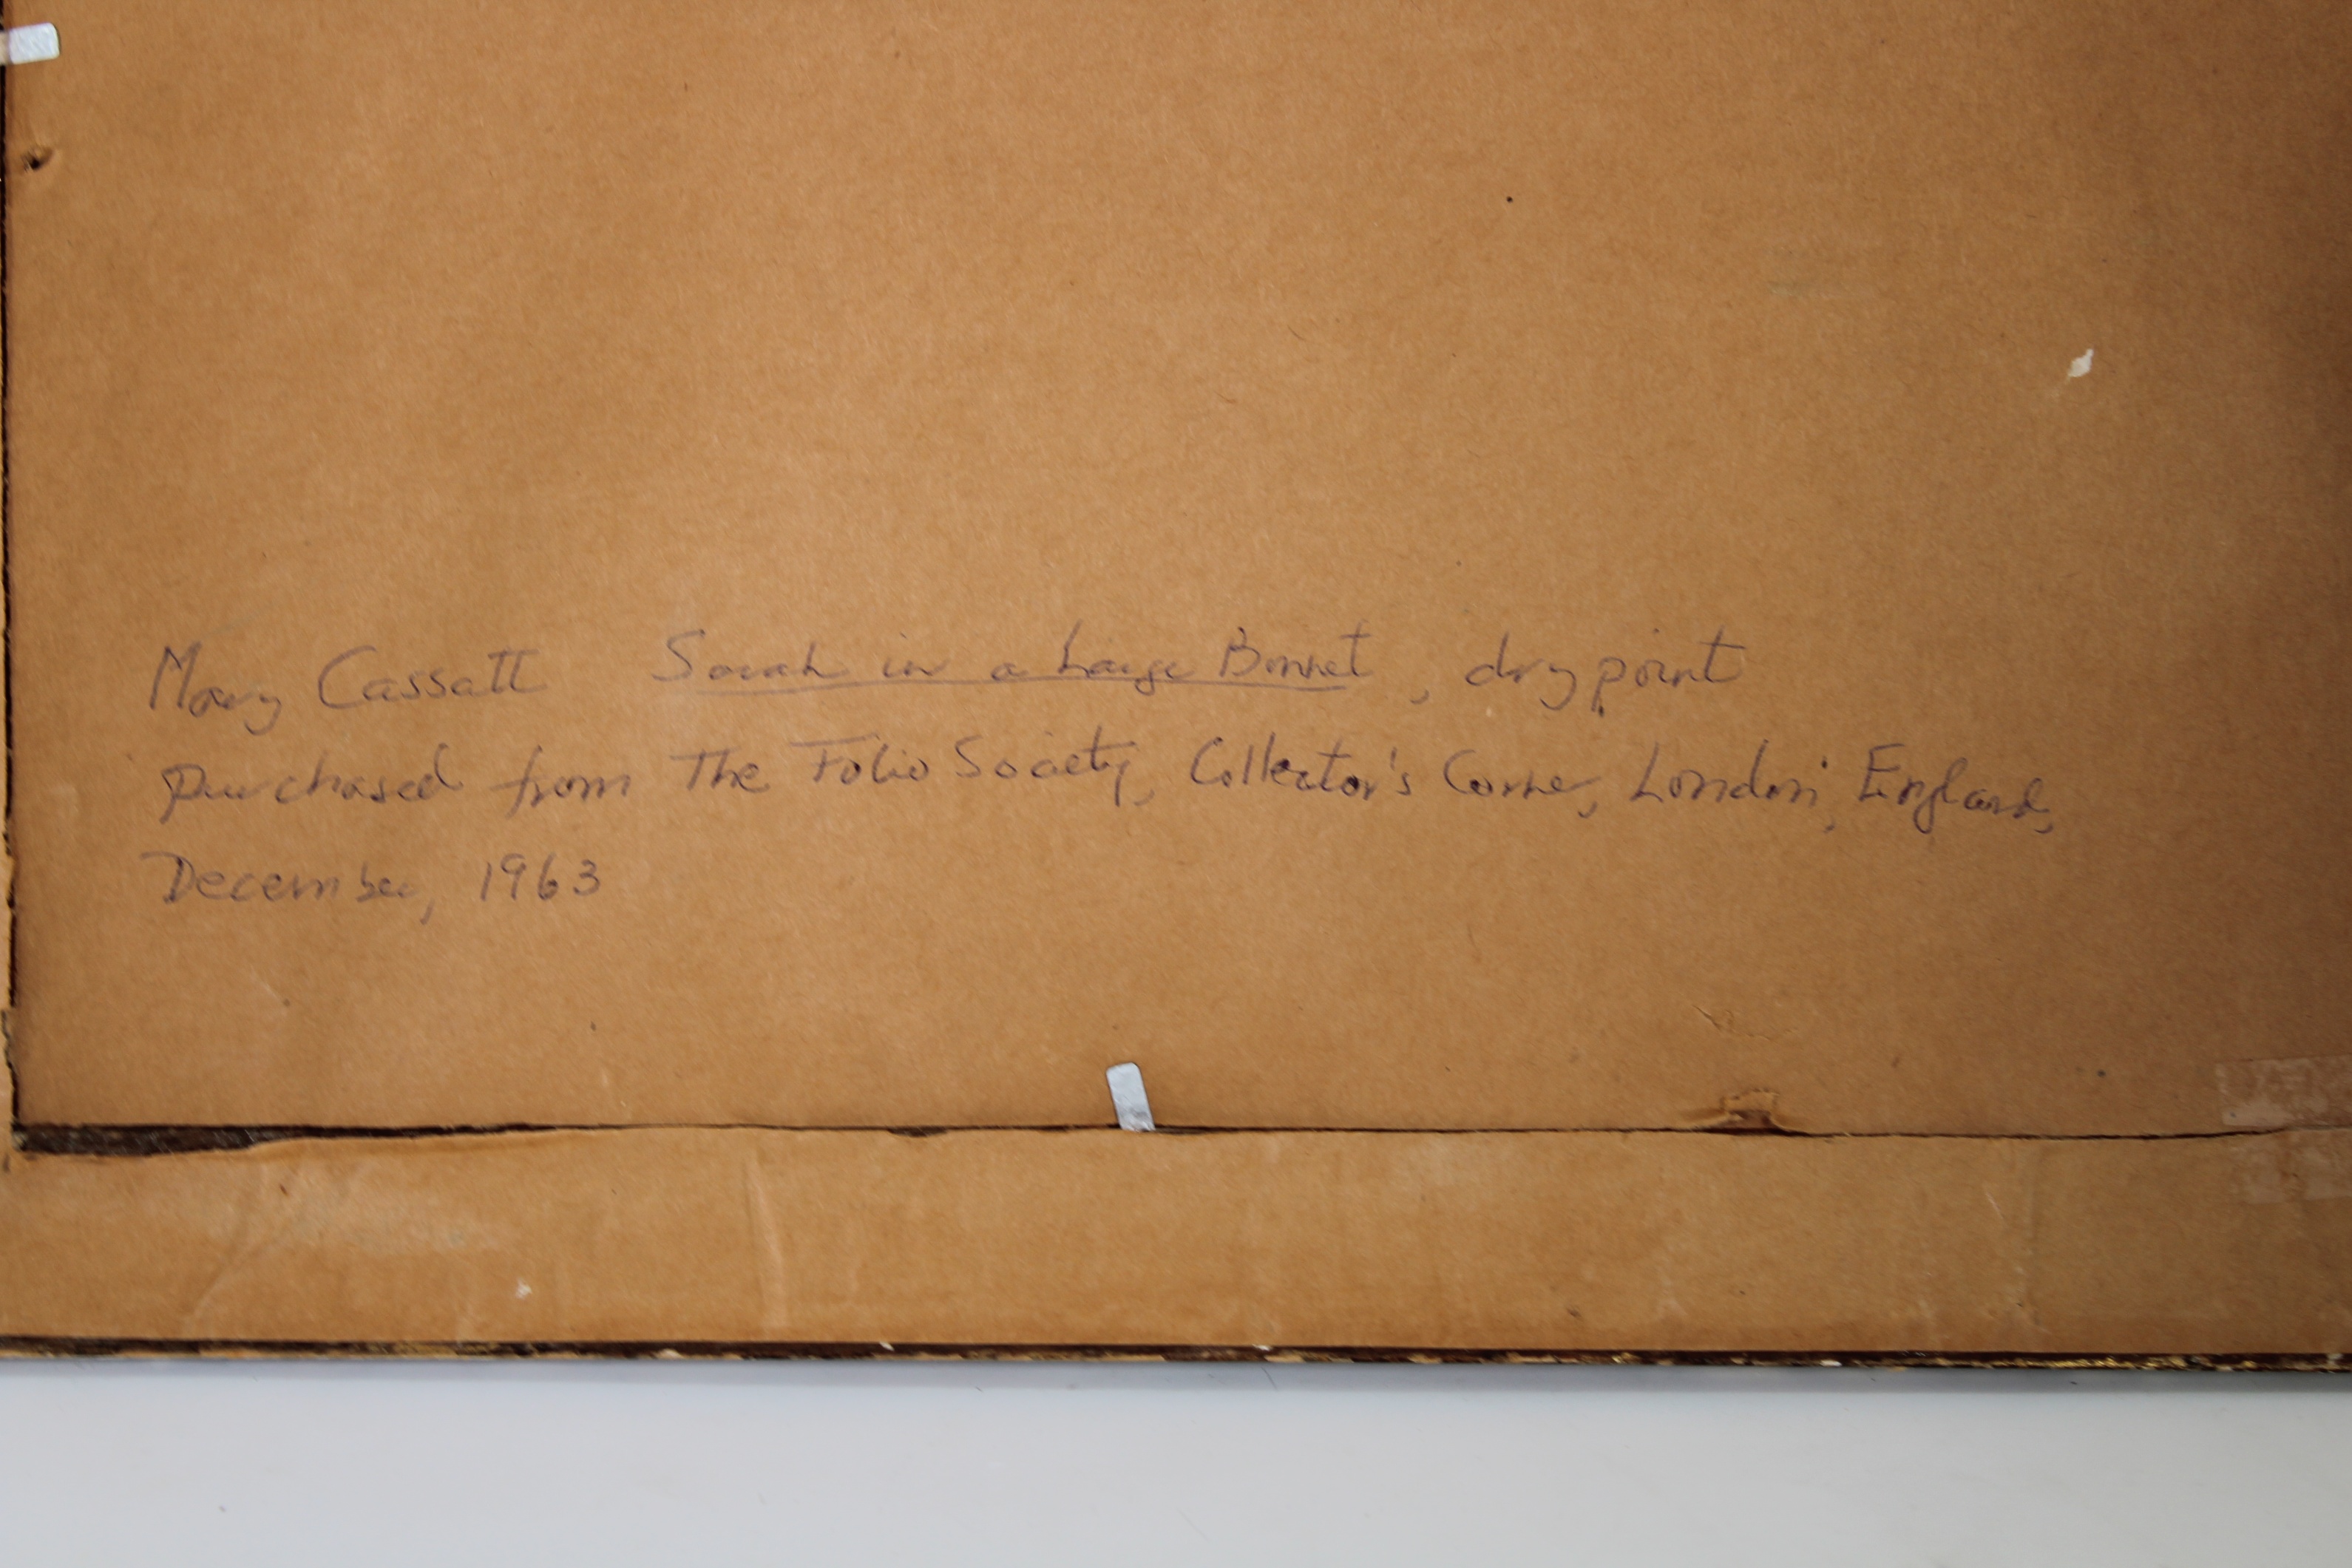 Mary Cassatt Sarah in a Large Bonnet, drypoint
purchased from The Folio Society, Collector's Corner, London, England,
December, 1963